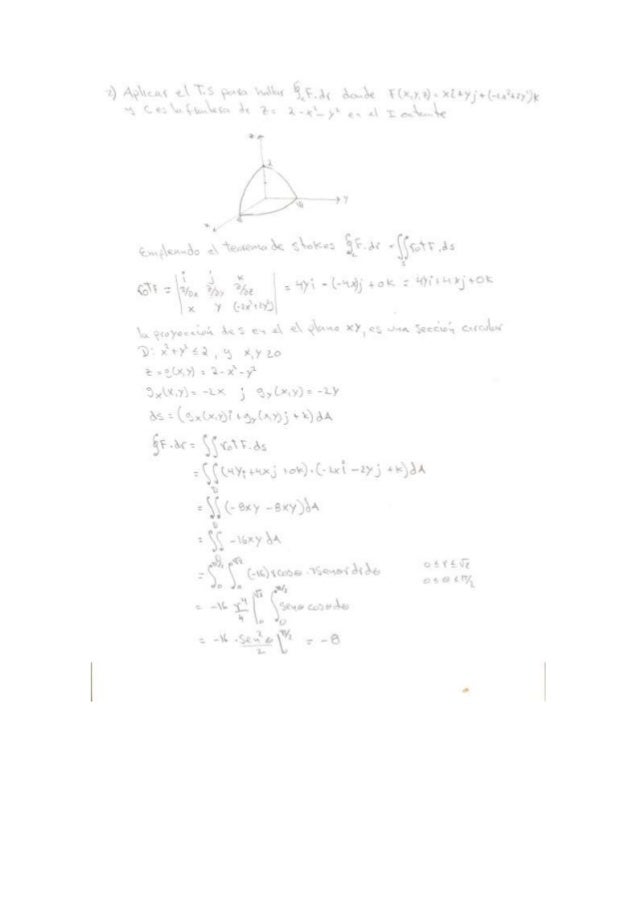 2) Aplicar el T.S para hallar ∮c F.dr donde F(x,y,z) = xi+yj+(-2x²+2y²)k
y C es la frontera de z = 2-x²-y² en el I octante
z
2
y
x
Empleando el teorema de stokes ∮c F.dr = ∬s rotF.ds
rotF = | i j k
∂/∂x ∂/∂y ∂/∂z
x y (-2x²+2y²) | = 4yi - (-4x)j + 0k = 4yi+4xj+0k
la proyección de s en el el plano xy, es una sección circular
D: x²+y² ≤ 2, y x,y ≥ 0
z = g(x,y) = 2-x²-y²
gx(x,y) = -2x ; gy(x,y) = -2y
ds = (gx(x,y)i + gy(x,y)j + k)dA
∮F.dr = ∬rotF.ds
= ∬D (4yi+4xj+0k).(-2xi-2yj+k)dA
= ∬D (-8xy-8xy)dA
= ∬D -16xy dA
= ∫₀^π/2 ∫₀^√2 (-16)rcosθ.rsenθrdrdθ 0≤r≤√2
0≤θ≤π/2
= -16 r⁴/4 |₀^√2 ∫₀^π/2 senθ cosθdθ
= -16 . sen²θ/2 |^π/2 = -8